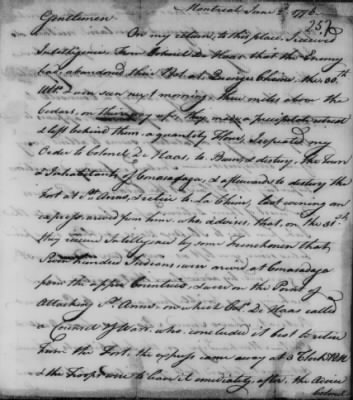 Montreal June 2d 1776.
252
Gentlemen
On my return to this place, I received
Intelligence from Colonel De Haas that the Enemy
had abandoned their Post at Quinze Chiens, the 30th
Ulto & were seen next morning, three miles above the
Cedars, on their way up. They made a precipitate retreat
& left behind them, a quantity Flour, I repeated my
Order to Colonel De Haas, to Burn & destroy, the Town
& Inhabitants of Conasadaga, & afterwards to destroy the
Fort at St. Anns, & retire to La Chine, last evening an
express arrived from him, who advises, that, on the 31st
they received Intelligence by some Frenchmen that
Seven hundred Indians, were arrived at Conasadaga
from the upper Countries, & were on the Point of
Attacking St. Anns. on which Col. De Haas called
a Council of War. who, concluded it best to retire
from the Fort. the express came away at 3 Clock PM
& the Troops were to leave it imediately, after, the Advice
Colonel